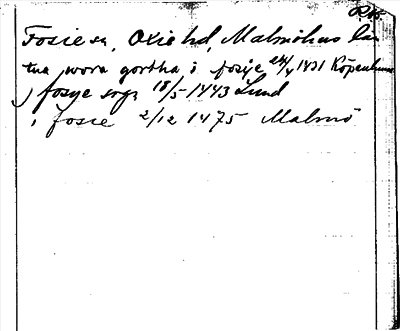 Fosie sn, Oxie hd, Malmöhus län
tua wora gortha i fosye 24/4 1431 Köpenhamn
j fosye sogn 18/5 1443 Lund
i fosie 2/12 1475 Malmö